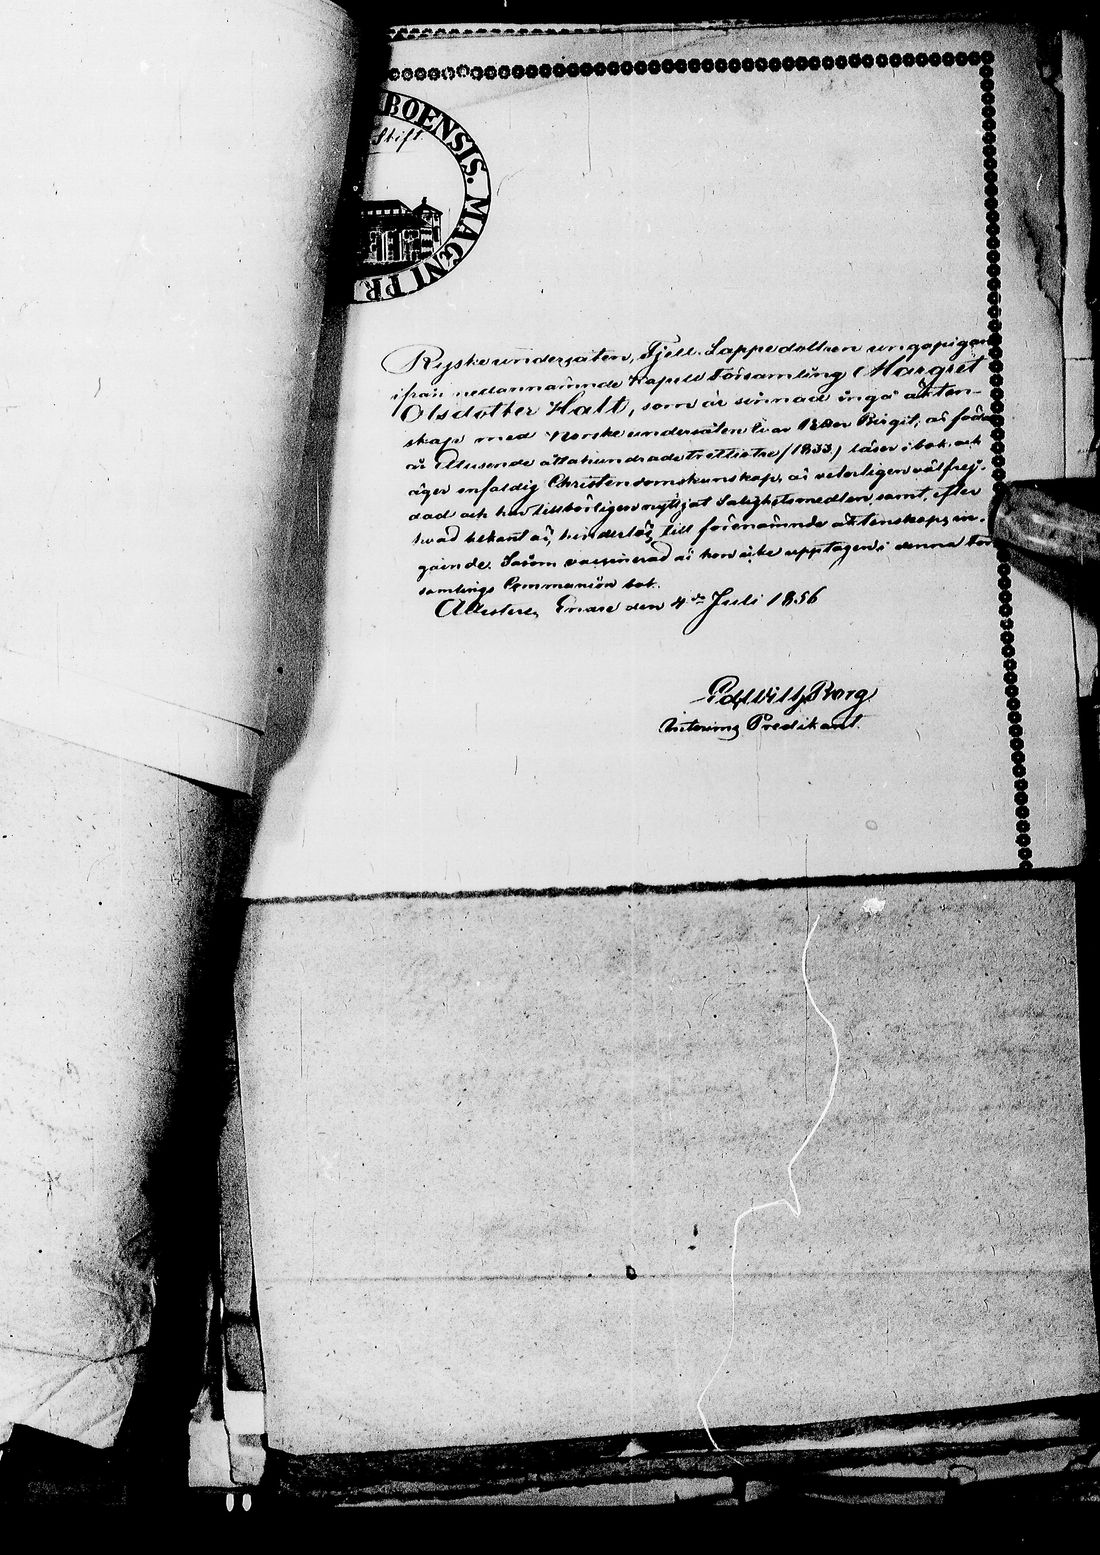 BOENSIS. MAGNI PR
Stift.
Ryske undersåten, Fjell Lappedottren ungapigan
ifrån nedannämnde Kapell Församling Margret
Olsdotter Halt, som är sinnad ingå äkten-
skap med Norske undersåten Ivar Birgit, är född
år ettusende åttahundrade trettiotre (1833) läser i bok och
äger enfaldig Christendomskunskap, är veterligen välfrej-
dad och har tillbörligen nyttjat Salighetsmedlen samt, efter
hvad bekant är, hinderlös till förenämnde äktenskaps in-
gående. Såsom vaccinerad är hon icke upptagen i denna För
samlings Communion bok.
Enare den 4de Juli 1856
Borg
Predikant.